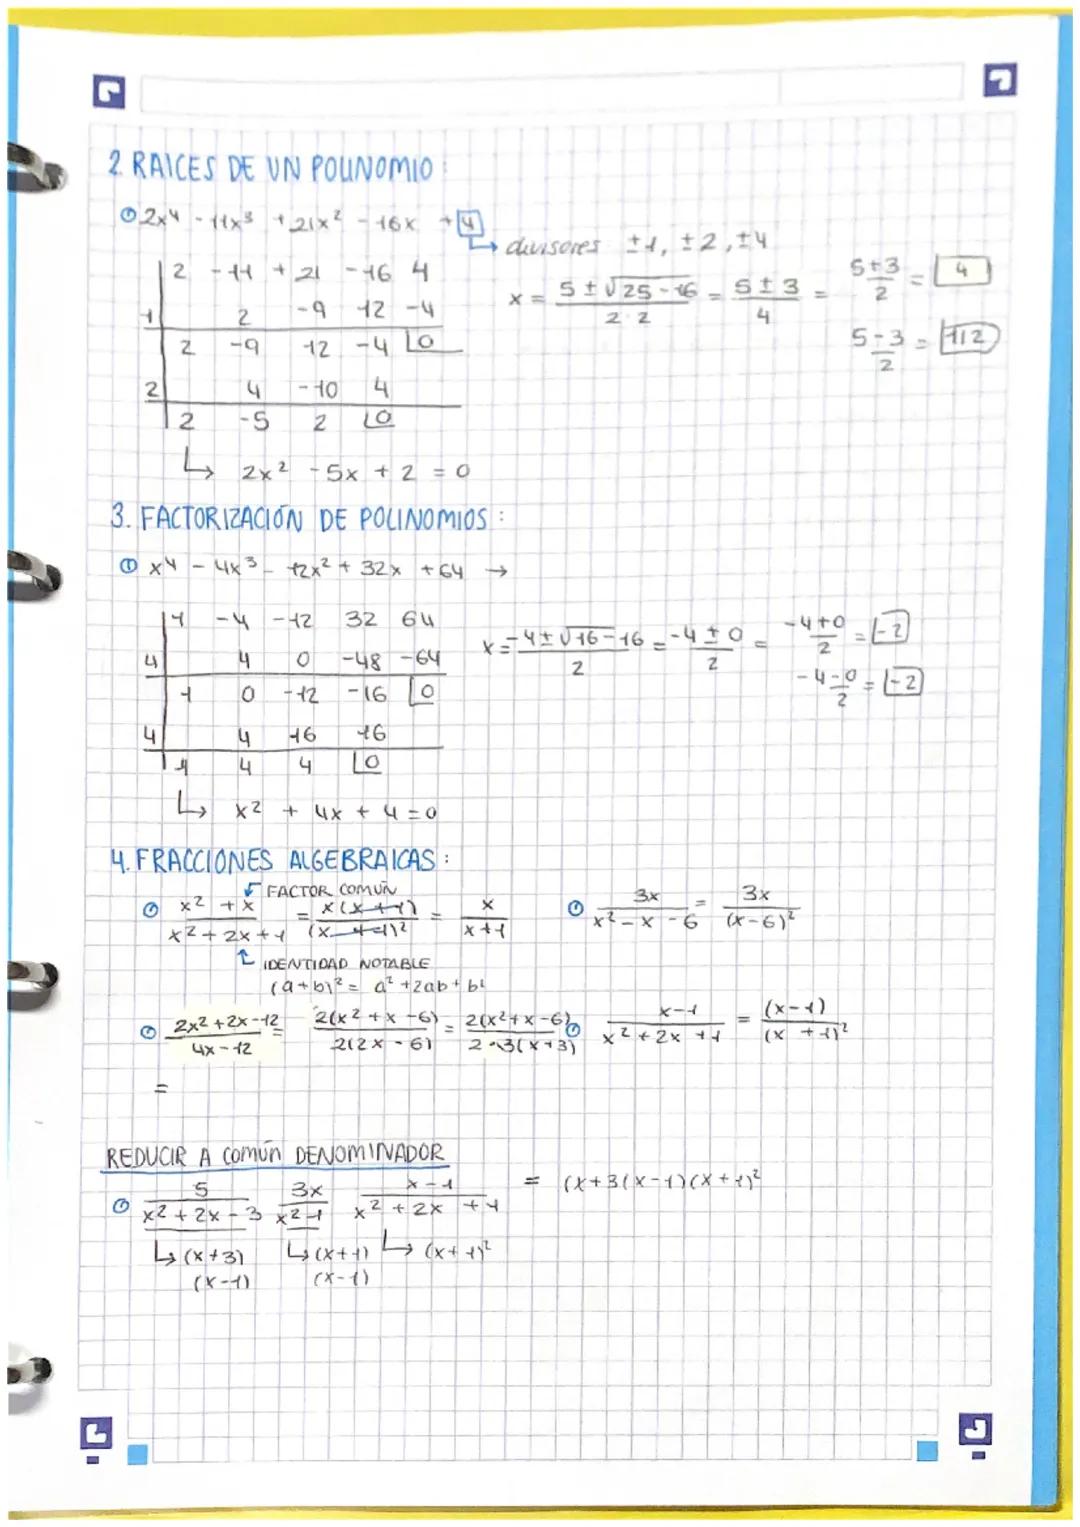 2. RAICES DE UN POLINOMIO:
① 2x⁴ - 11x³ + 21x² - 16x + 4
↳ divisores ±1, ±2, ±4
2 -11 + 21 -16 4
1 2 -9 12 -4
2 -9 12 -4 0
2 4 -10 4
2 -5 2 0
↳ 2x² - 5x + 2 = 0
x = 5 ± √25 - 16 / 2·2 = 5 ± 3 / 4 =
5+3 / 2 = 4
5-3 / 2 = 1/2
3. FACTORIZACIÓN DE POLINOMIOS:
① x⁴ - 4x³ - 12x² + 32x + 64 →
1 -4 -12 32 64
4 4 0 -48 -64
1 0 -12 -16 0
4 4 16 16
1 4 4 0
↳ x² + 4x + 4 = 0
x = -4 ± √16 - 16 / 2 = -4 ± 0 / 2 =
-4+0 / 2 = -2
-4-0 / 2 = -2
4. FRACCIONES ALGEBRAICAS:
FACTOR COMÚN
① x² + x / x² + 2x + 1 = x(x+1) / (x+1)² = x / x+1
IDENTIDAD NOTABLE
(a+b)² = a² + 2ab + b²
① 3x / x² - x - 6 = 3x / (x-6)²
① 2x² + 2x - 12 / 4x - 12 = 2(x² + x - 6) / 2(2x - 6) = 2(x² + x - 6) / 2·3(x+3)
① x-1 / x² + 2x + 1 = (x-1) / (x+1)²
=
REDUCIR A común DENOMINADOR
① 5 / x² + 2x - 3 3x / x² - 1 x-1 / x² + 2x + 1 = (x+3(x-1)(x+1)²
↳ (x+3) ↳ (x+1) ↳ (x+1)²
(x-1) (x-1)